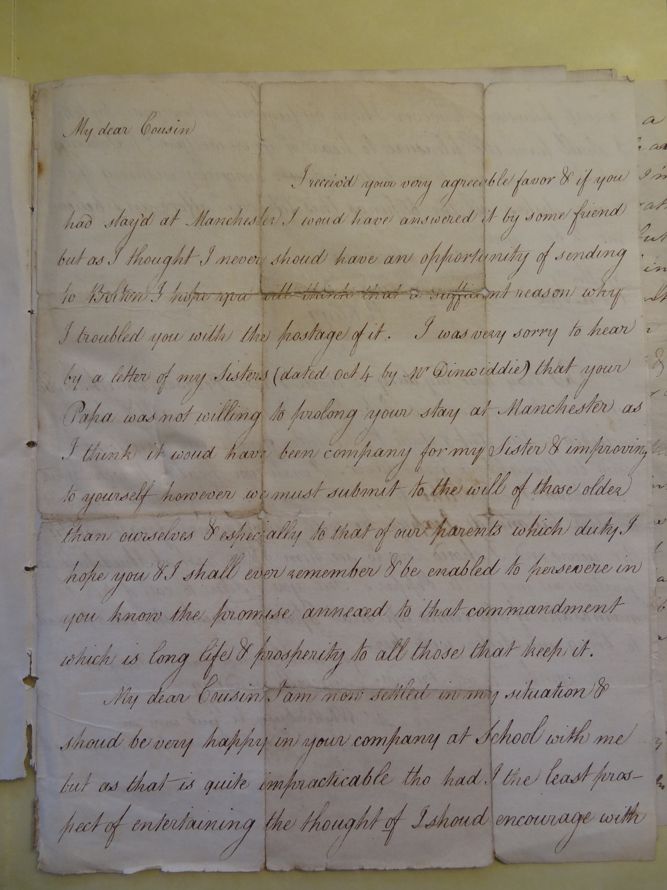 My dear Cousin
I receiv'd your very agreeable favor & if you
had stay'd at Manchester I woud have answered it by some friend
but as I thought I never shoud have an opportunity of sending
to Bolton I hope you will think that a sufficient reason why
I troubled you with the postage of it. I was very sorry to hear
by a letter of my Sisters (dated Oct 4 by Mr Dinwiddie) that your
Papa was not willing to prolong your stay at Manchester as
I think it woud have been company for my Sister & improving
to yourself however we must submit to the will of those older
than ourselves & especially to that of our parents which duty I
hope you & I shall ever remember & be enabled to persevere in
you know the promise annexed to that commandment
which is long life & prosperity to all those that keep it.
My dear Cousin I am now settled in my situation &
shoud be very happy in your company at School with me
but as that is quite impracticable tho had I the least pros-
pect of entertaining the thought of I shoud encourage with